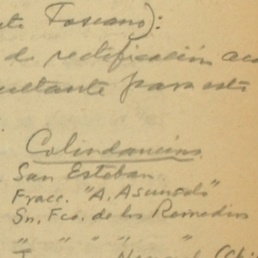 Toscano):
de rectificación
para este
Colindancias
San Esteban
Fracc. "A. Asunsolo"
Sn. Fco. de los Remedios
" " " " "